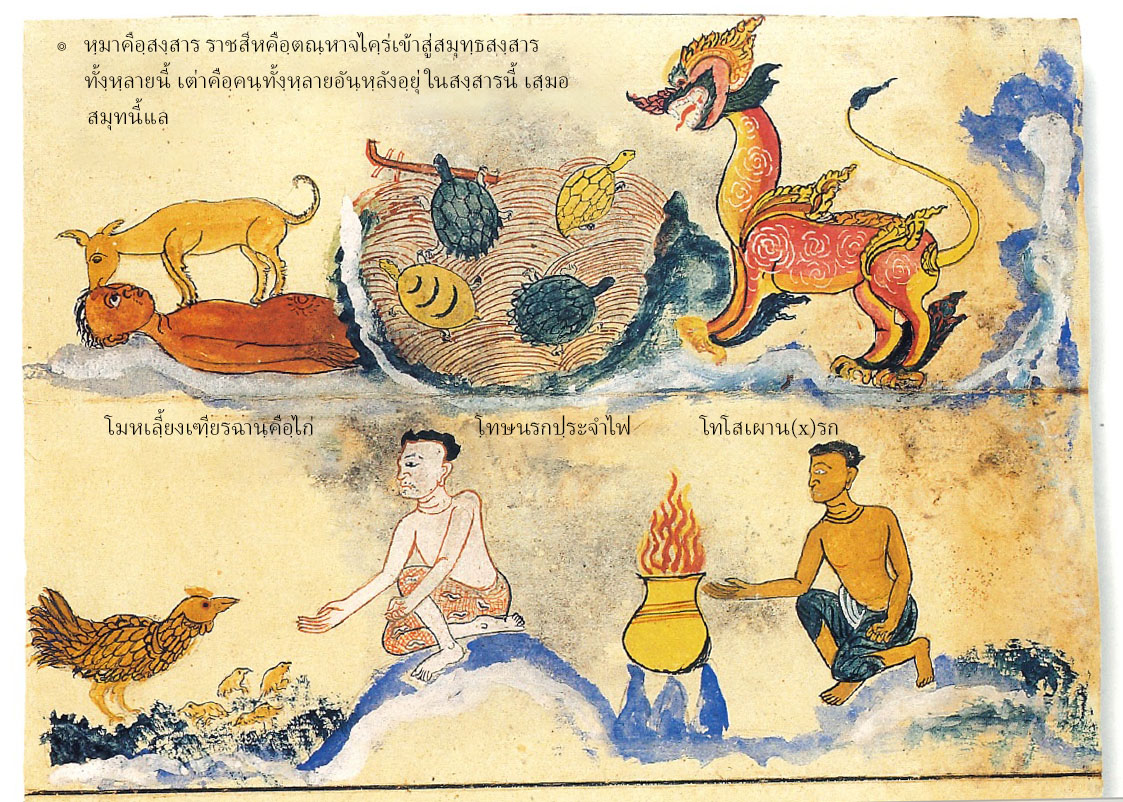 ๏ หฺมาคือฺสงฺสาร ราชสีหคือฺตณฺหาจไคฺร่เข้าสู่สมุทฺธสงฺสาร
ทั้งฺหฺลายนี้ เต่าคือฺคนฺทั้งฺหฺลายอันหฺลังอยฺุ่ ในสงฺสารนี้ เสฺมอ
สมุทนี้แล
โมหเลีฺ้ยงเฑฺียรฉานฺคือฺไก่
โทฺษนรกปฺระจำไฟ
โทโสเผาน(x)รก